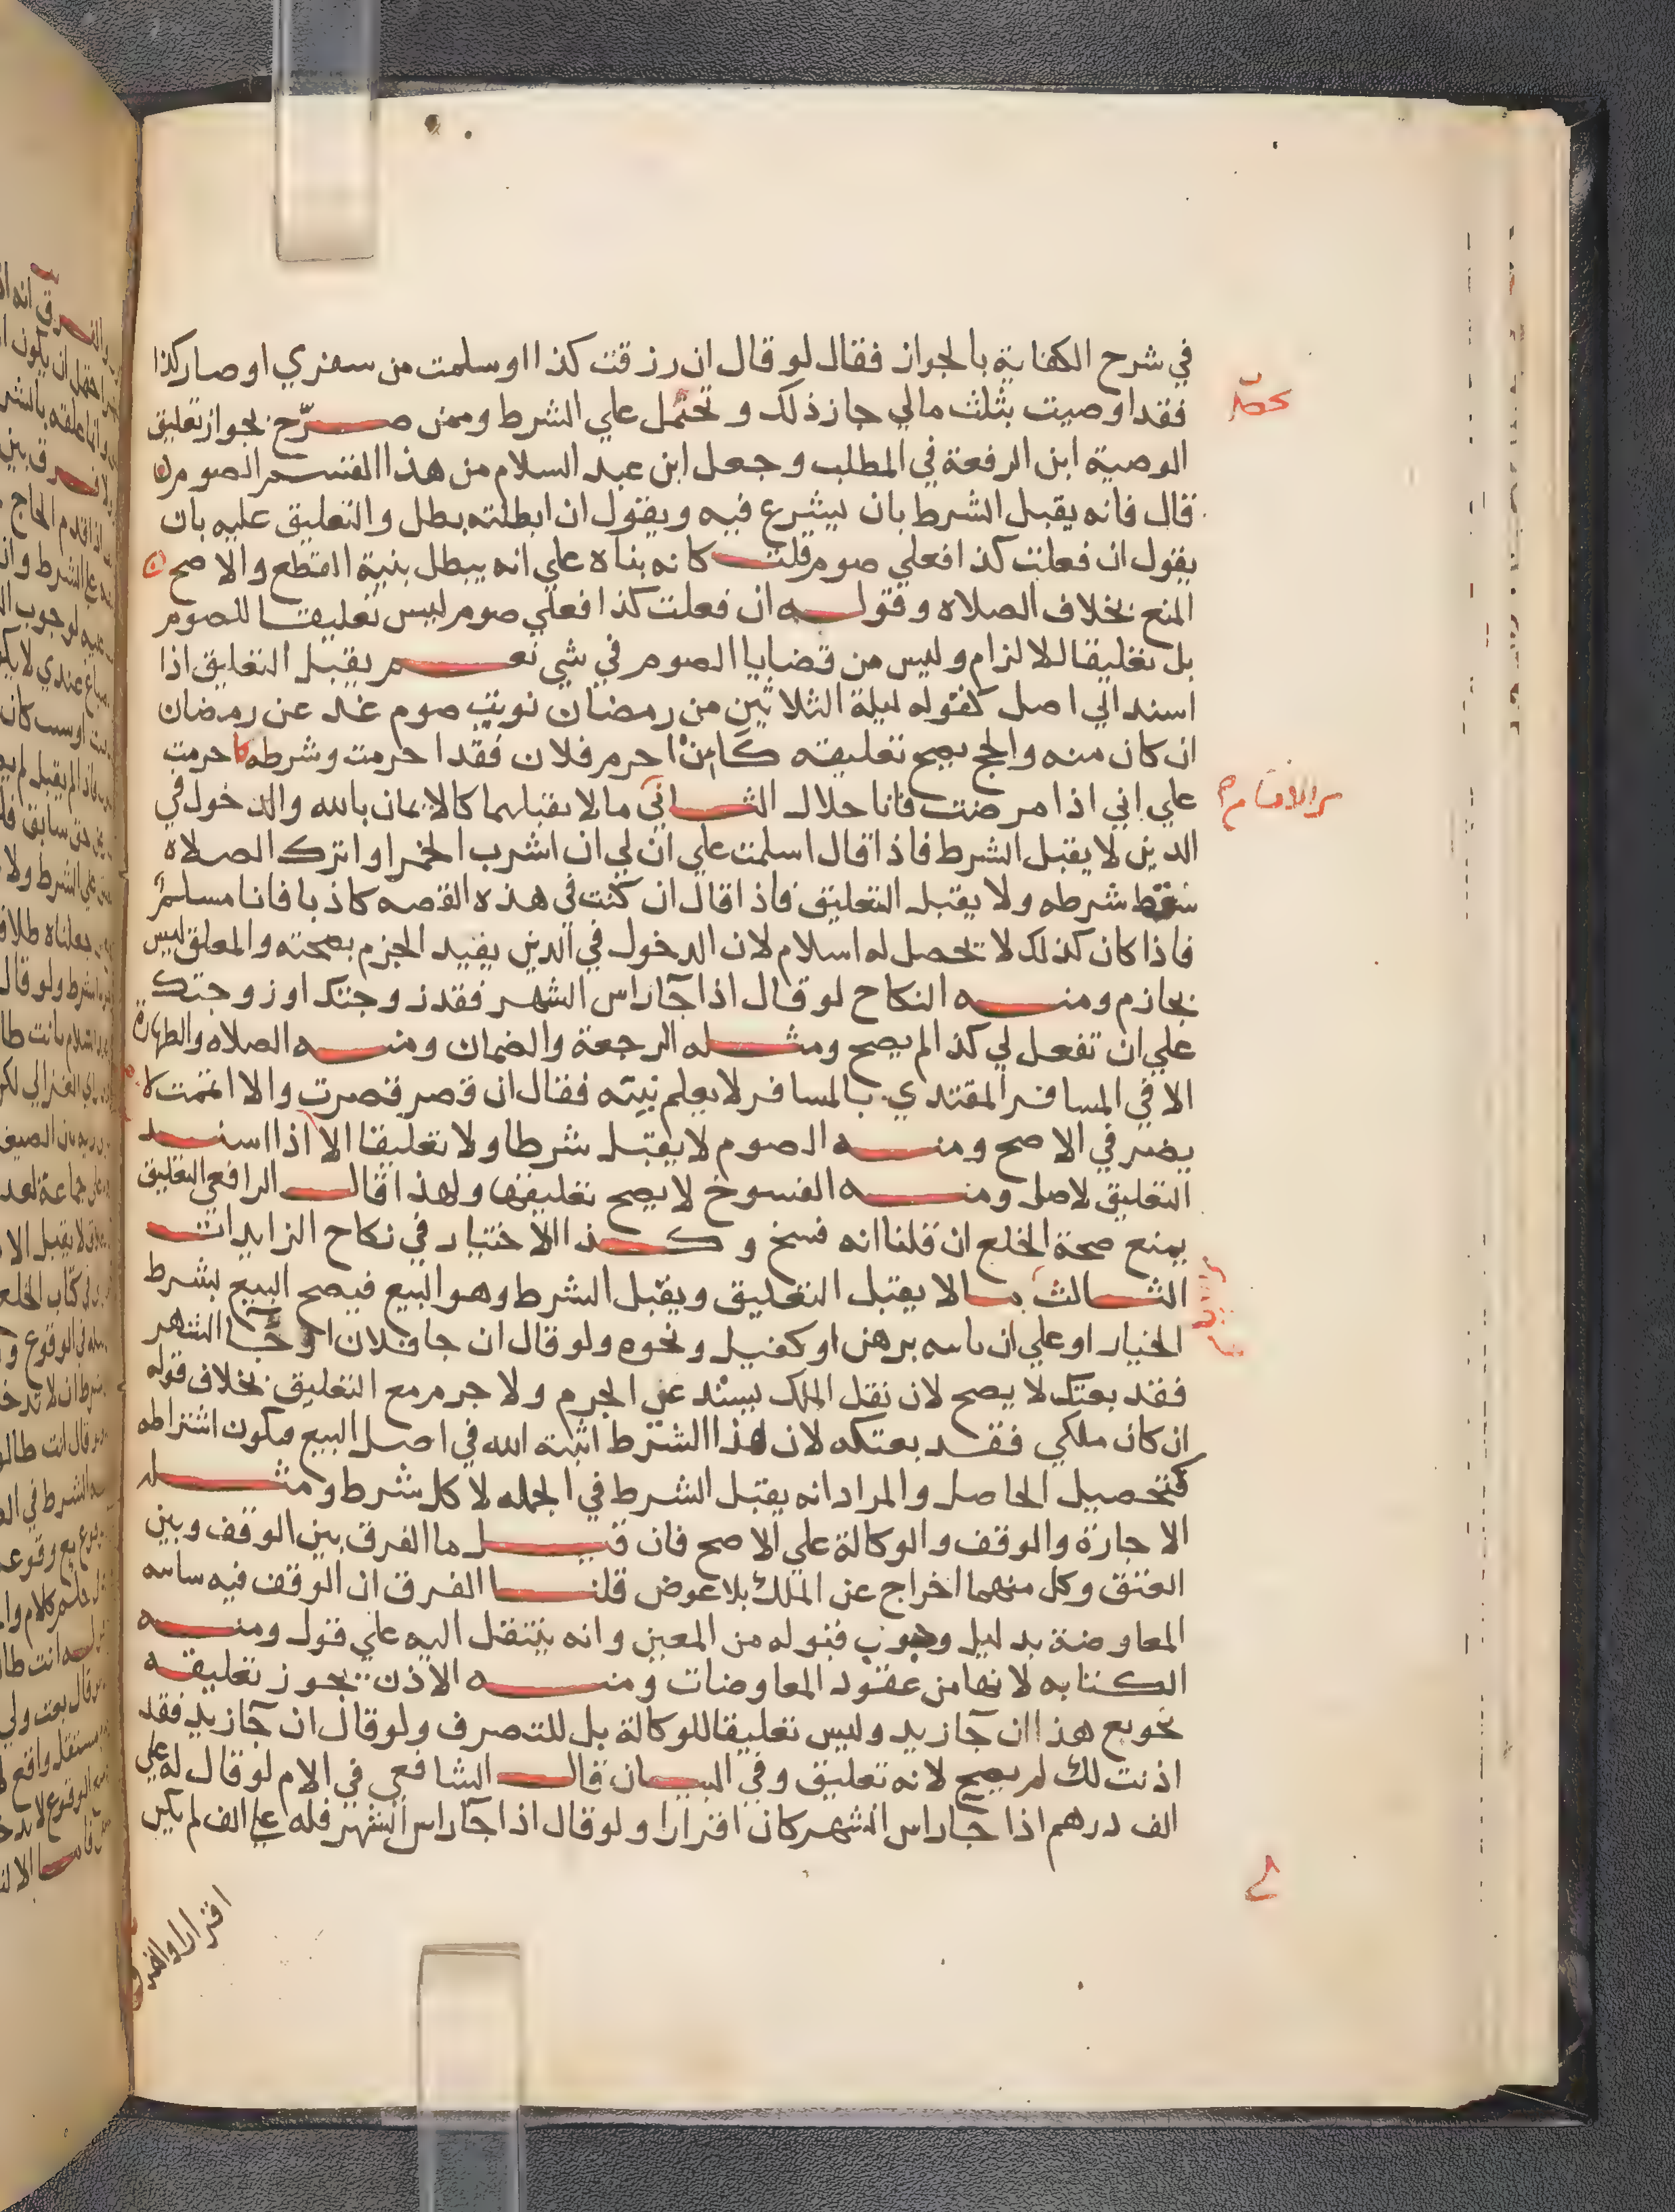 في شرح الكفاية بالجواز فقال لو قال ان رزقت كذا او سلمت من سفري او صار كذا
فقد اوصيت بثلث مالي جاز ذلك و تحتمل علي الشرط وممن صرّح بجواز تعليق
الوصية ابن الرفعة في المطلب وجعل ابن عبد السلام من هذا القسم الصوم
قال فانه يقبل الشرط بان يشرع فيه ويقول ان ابطلته بطل والتعليق عليه بان
يقول ان فعلت كذا فعلي صوم قلت كانه بناه علي انه يبطل بنية القطع والاصح
المنع بخلاف الصلاه وقوله ان فعلت كذا فعلي صوم ليس تعليقا للصوم
بل تعليقا للالزام وليس من قضايا الصوم في شي نعم يقبل التعليق اذا
اسند الي اصل كقوله ليلة الثلاثين من رمضان نويت صوم غد عن رمضان
ان كان منه والحج يصح تعليقه كان احرم فلان فقد احرمت وشرطه كاحرمت
علي اني اذا مرضت فانا حلال الثاني ما لا يقبلهما كالايمان بالله والدخول في
الدين لا يقبل الشرط فاذا قال اسلمت علي ان لي ان اشرب الخمر او اترك الصلاه
سقط شرطه ولا يقبل التعليق فاذا قال ان كنت في هذه القصه كاذبا فانا مسلم
فاذا كان كذلك لا تحصل له اسلام لان الدخول في الدين يفيد الجزم بصحته والمعلق ليس
بجازم ومنه النكاح لو قال اذا جآ راس الشهر فقد زوجتك او زوجتك
علي ان تفعل لي كذا لم يصح ومثله الرجعة والضمان ومنه الصلاه والطهارة
الا في المسافر المقتدي بالمسافر لا يعلم نيته فقال ان قصر قصرت والا اتممت لا
يضر في الاصح ومنه الصوم لا يقبل شرطا ولا تعليقا الا اذا اسند
التعليق لاصل ومنه الفسوخ لا يصح تعليقها ولهذا قال الرافعي التعليق
يمنع صحة الخلع ان قلنا انه فسخ وكذا الاختيار في نكاح الزايدات
الثالث ما لا يقبل التعليق ويقبل الشرط وهو البيع فيصح البيع بشرط
الخيار او علي ان ياتيه برهن او كفيل ونحوه ولو قال ان جا فلان او جا الشهر
فقد بعتك لا يصح لان نقل الملك يستد عي الجزم ولا جرم مع التعليق بخلاف قوله
ان كان ملكي فقد بعتكه لان هذا الشرط اثبته الله في اصل البيع فيكون اشتراطه
كتحصيل الحاصل والمراد انه يقبل الشرط في الجمله لا كل شرط ومثله
الاجارة والوقف والوكالة علي الاصح فان قيل ما الفرق بين الوقف وبين
العتق وكل منهما اخراج عن الملك بلا عوض قلنا الفرق ان الوقف فيه شايبه
المعاوضة بدليل وجوب قبوله من المعين وانه ينتقل اليه علي قول ومنه
الكتابه لانها من عقود المعاوضات ومنه الاذن يجوز تعليقه
نحو بع هذا ان جآ زيد وليس تعليقا للوكالة بل للتصرف ولو قال ان جآ زيد فقد
اذنت لك لم يصح لانه تعليق وفي البيان قال الشافعي في الام لو قال له علي
الف درهم اذا جآ راس الشهر كان اقرارا ولو قال اذا جآ راس الشهر فله علي الف لم يكن
اقرارا والفرق